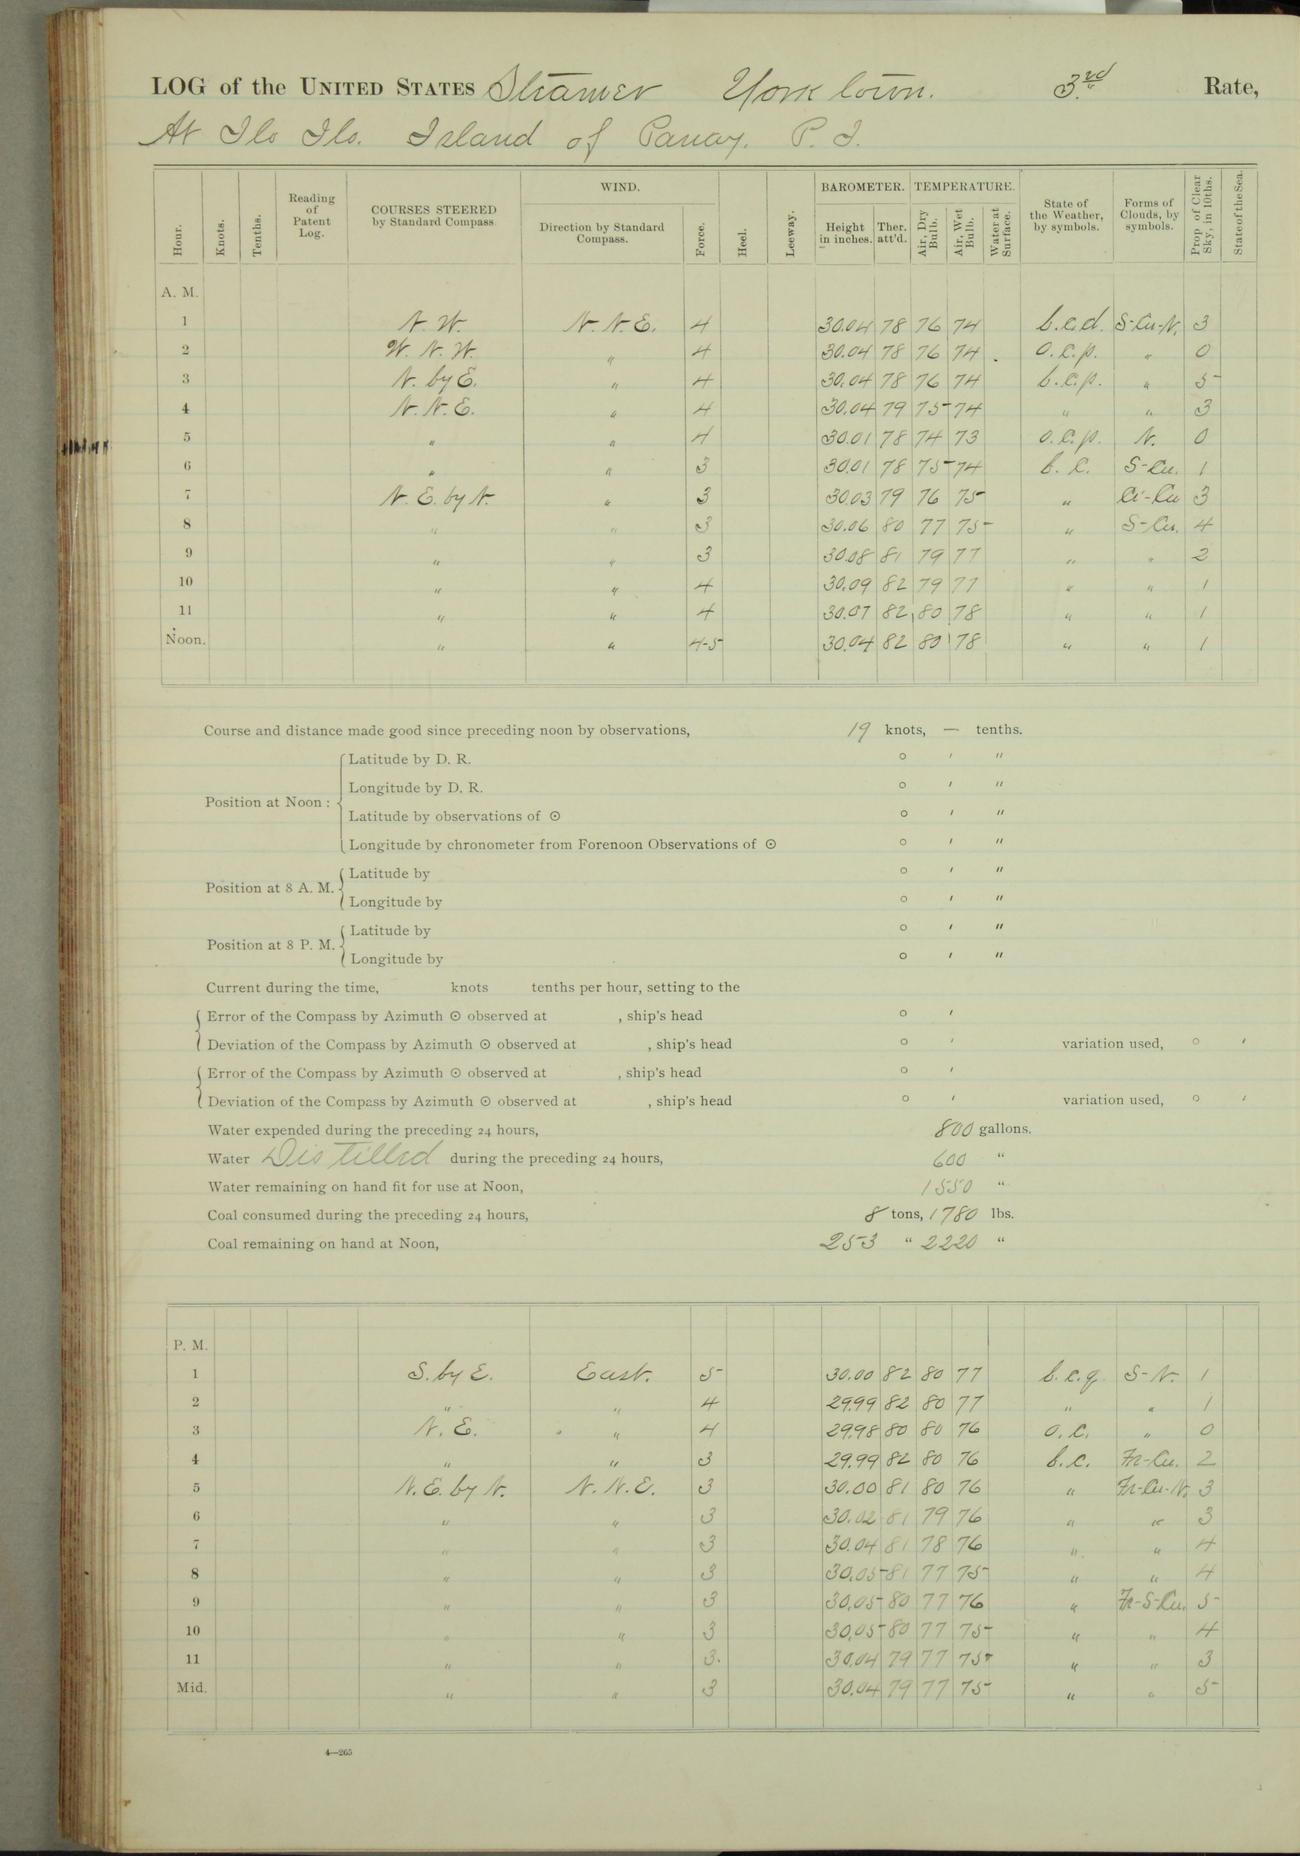 LOG of the UNITED STATES Steamer Yorktown. 3rd Rate,
At Ilo Ilo. Island of Panay. P. I.
Hour. Knots. Tenths. Reading of Patent Log. COURSES STEERED by Standard Compass WIND. Direction by Standard Compass. Force. Heel. Leeway. BAROMETER. Height in inches. Ther. att'd. TEMPERATURE. Air, Dry Bulb. Air, Wet Bulb. Water at Surface. State of the Weather, by symbols. Forms of Clouds, by symbols. Prop. of Clear Sky, in 10ths. State of the Sea.
A. M.
1 N. W. N. N. E. 4 30.04 78 76 74 b.c.d. S-Cu-N. 3
2 W. N. W. " 4 30.04 78 76 74 o.c.p. " 0
3 N. by E. " 4 30.04 78 76 74 b.c.p. " 5
4 N. N. E. " 4 30.04 79 75 74 " " 3
5 " " 4 30.01 78 74 73 o.c.p. N. 0
6 " " 3 30.01 78 75 74 b. c. S-Cu. 1
7 N. E. by N. " 3 30.03 79 76 75 " Ci-Cu 3
8 " " 3 30.06 80 77 75 " S-Cu. 4
9 " " 3 30.08 81 79 77 " " 2
10 " " 4 30.09 82 79 77 " " 1
11 " " 4 30.07 82 80 78 " " 1
Noon. " " 4-5 30.04 82 80 78 " " 1
Course and distance made good since preceding noon by observations, 19 knots, — tenths.
Position at Noon : Latitude by D. R. ° ′ ″
Longitude by D. R. ° ′ ″
Latitude by observations of ☉ ° ′ ″
Longitude by chronometer from Forenoon Observations of ☉ ° ′ ″
Position at 8 A. M. Latitude by ° ′ ″
Longitude by ° ′ ″
Position at 8 P. M. Latitude by ° ′ ″
Longitude by ° ′ ″
Current during the time, knots tenths per hour, setting to the
Error of the Compass by Azimuth ☉ observed at , ship's head ° ′
Deviation of the Compass by Azimuth ☉ observed at , ship's head ° ′ variation used, ° ′
Error of the Compass by Azimuth ☉ observed at , ship's head ° ′
Deviation of the Compass by Azimuth ☉ observed at , ship's head ° ′ variation used, ° ′
Water expended during the preceding 24 hours, 800 gallons.
Water Distilled during the preceding 24 hours, 600 "
Water remaining on hand fit for use at Noon, 1550 "
Coal consumed during the preceding 24 hours, 8 tons, 1780 lbs.
Coal remaining on hand at Noon, 253 " 2220 "
P. M.
1 S. by E. East. 5 30.00 82 80 77 b.c.q. S-N. 1
2 " " 4 29.99 82 80 77 " " 1
3 N. E. " 4 29.98 80 80 76 o.c. " 0
4 " " 3 29.99 82 80 76 b.c. Fr-Cu. 2
5 N. E. by N. N. N. E. 3 30.00 81 80 76 " Fr-Cu-N. 3
6 " " 3 30.02 81 79 76 " " 3
7 " " 3 30.04 81 78 76 " " 4
8 " " 3 30.05 81 77 75 " " 4
9 " " 3 30.05 80 77 76 " Fr-S-Cu. 5
10 " " 3 30.05 80 77 75 " " 4
11 " " 3. 30.04 79 77 75 " " 3
Mid. " " 3 30.04 79 77 75 " " 5
4—265